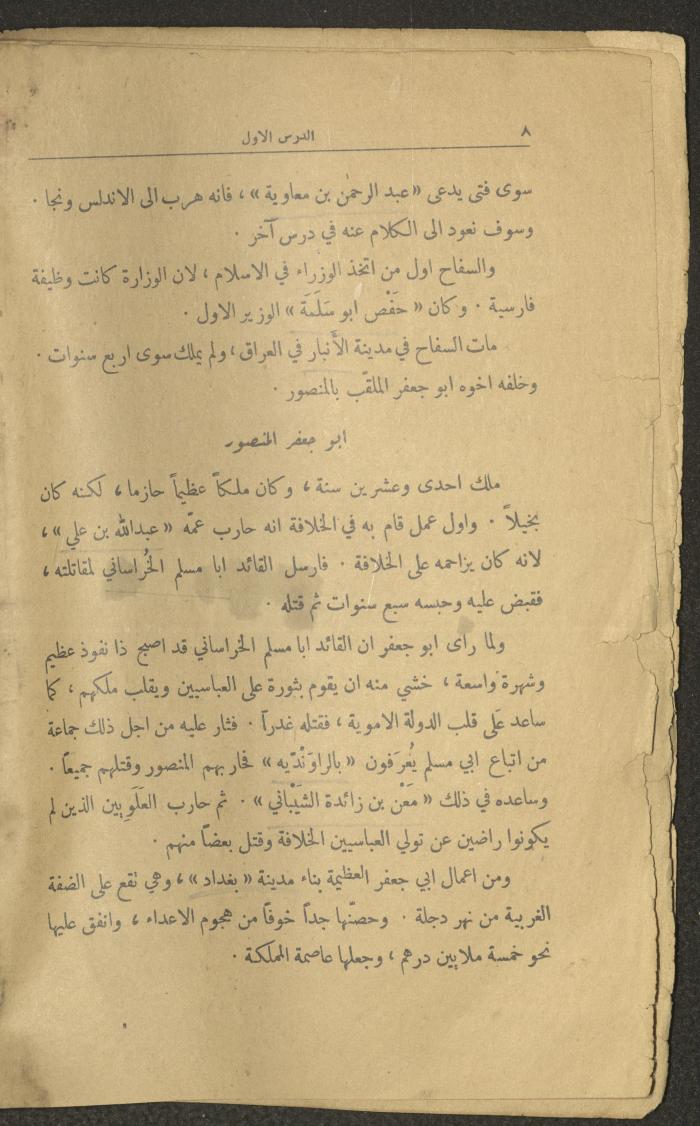 ٨
الدرس الاول
سوى فتى يدعى «عبد الرحمٰن بن معاوية» ، فانه هرب الى الاندلس ونجا .
وسوف نعود الى الكلام عنه في درس آخر .
والسفاح اول من اتخذ الوزراء في الاسلام ، لان الوزارة كانت وظيفة
فارسية . وكان « حَفْص ابو سَلَمَة » الوزير الاول .
مات السفاح في مدينة الأَنبار في العراق ، ولم يملك سوى اربع سنوات .
وخلفه اخوه ابو جعفر الملقّب بالمنصور .
ابو جعفر المنصور
ملك احدى وعشرين سنة ، وكان ملكاً عظيماً حازما ، لكنه كان
بخيلاً . واول عمل قام به في الخلافة انه حارب عمّه «عبدالله بن علي» ،
لانه كان يزاحمه على الخلافة . فارسل القائد ابا مسلم الخُراساني لمقاتلته ،
فقبض عليه وحبسه سبع سنوات ثم قتله .
ولما راى ابو جعفر ان القائد ابا مسلم الخراساني قد اصبح ذا نفوذ عظيم
وشهرة واسعة ، خشي منه ان يقوم بثورة على العباسيين ويقلب ملكهم ، كما
ساعد عَلى قلب الدولة الاموية ، فقتله غدراً . فثار عليه من اجل ذلك جماعة
من اتباع ابي مسلم يُعرَفون «بالراوَنْدّيه» فحاربهم المنصور وقتلهم جميعاً .
وساعده في ذلك «مَعْن بن زائدة الشَيْباني» . ثم حارب العَلَوِيين الذين لم
يكونوا راضين عن تولي العباسيين الخلافة وقتل بعضاً منهم .
ومن اعمال ابي جعفر العظيمة بناء مدينة «بغداد» ، وهي تقع على الضفة
الغربية من نهر دجلة . وحصّنها جداً خوفاً من هجوم الاعداء ، وانفق عليها
نحو خمسة ملايين درهم ، وجعلها عاصمة المملكة .